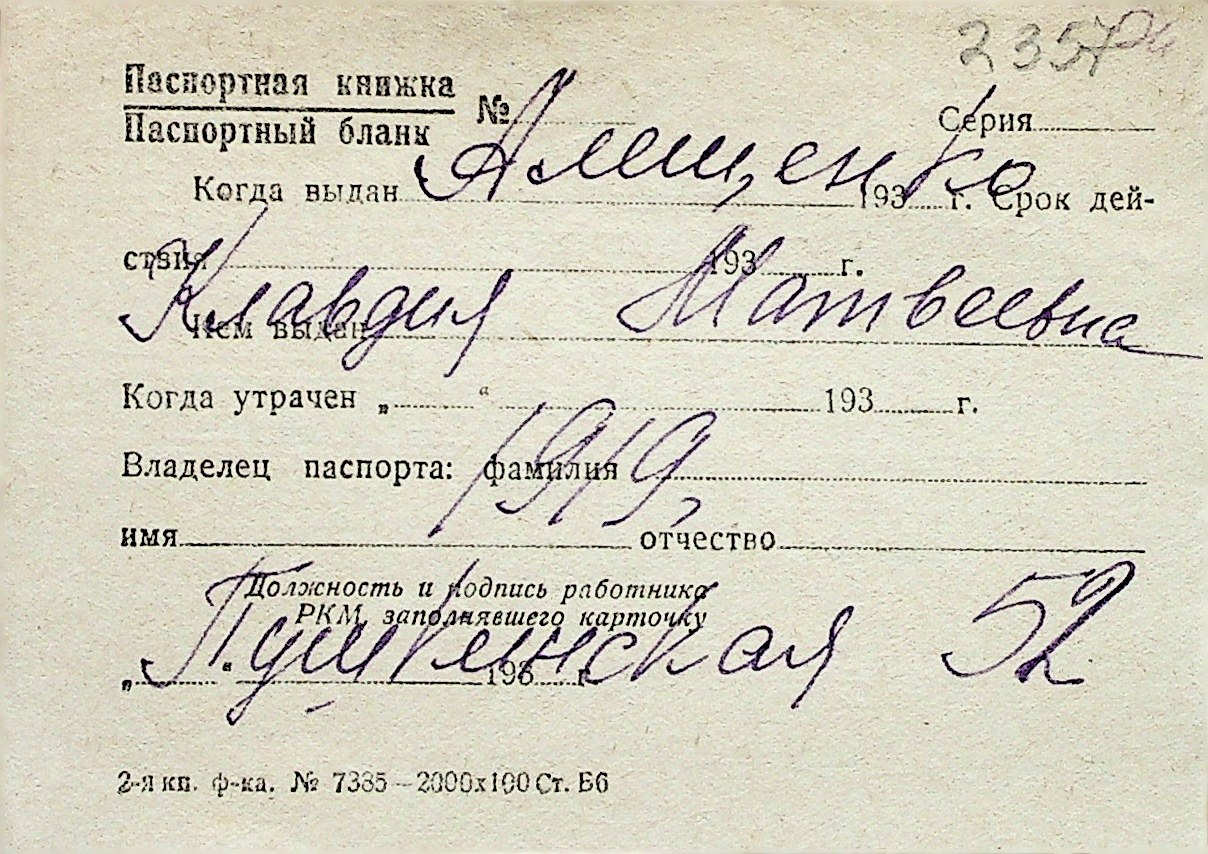 2357
Паспортная книжка
Паспортный бланк
№
Серия
Алещенко
Когда выдан 193 г. Срок дей-
ствия 193 г.
Клавдия Матвеевна
Кем выдан
Когда утрачен „ “ 193 г.
1919,
Владелец паспорта: фамилия
имя отчество
Должность и подпись работника
РКМ, заполнявшего карточку
Пушкинская 52
„ “ 193 г.
2-я кп. ф-ка. № 7385—2000х100 Ст. Б6